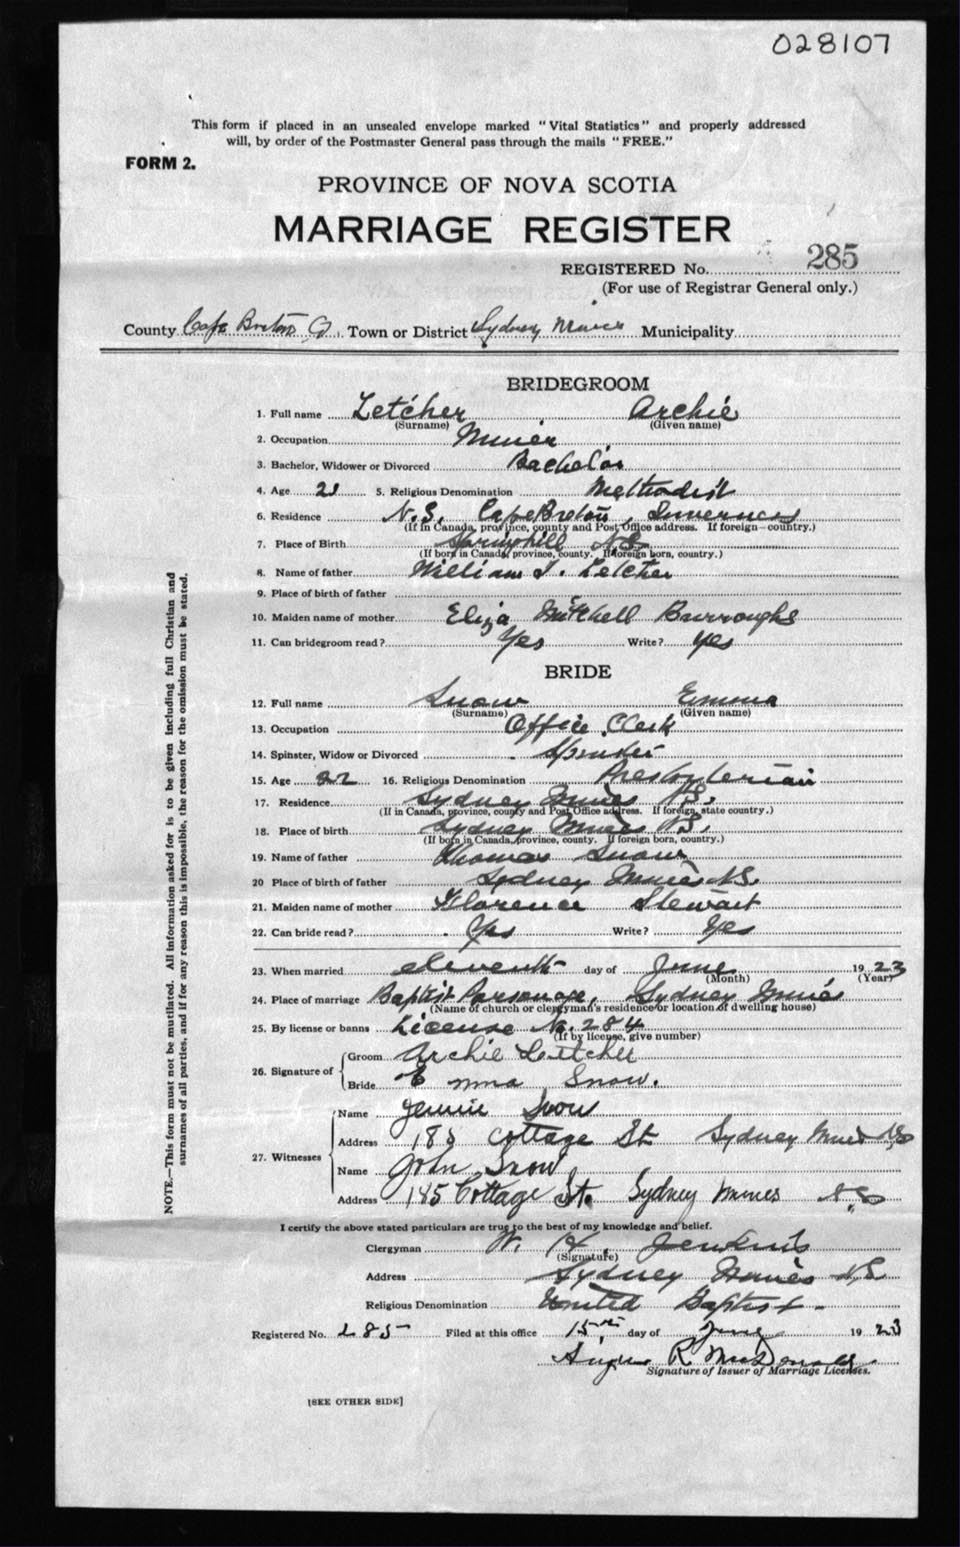 028107
This form if placed in an unsealed envelope marked "Vital Statistics" and properly addressed
will, by order of the Postmaster General pass through the mails "FREE."
FORM 2.
PROVINCE OF NOVA SCOTIA
MARRIAGE REGISTER
REGISTERED No. 285
(For use of Registrar General only.)
County Cape Breton Town or District Sydney Mines Municipality
BRIDEGROOM
1. Full name Letcher Archie
(Surname) (Given name)
2. Occupation Miner
3. Bachelor, Widower or Divorced Bachelor
4. Age 21 5. Religious Denomination Methodist
6. Residence N.S. Cape Breton, Inverness
(If in Canada, province, county and Post Office address. If foreign—country.)
7. Place of Birth Springhill N.S.
(If born in Canada, province, county. If foreign born, country.)
8. Name of father William J. Letcher
9. Place of birth of father
10. Maiden name of mother Eliza Mitchell Burroughs
11. Can bridegroom read? Yes Write? yes
BRIDE
12. Full name Snow Emma
(Surname) (Given name)
13. Occupation Office Clerk
14. Spinster, Widow or Divorced Spinster
15. Age 22 16. Religious Denomination Presbyterian
17. Residence Sydney Mines N.S.
(If in Canada, province, county and Post Office address. If foreign, state country.)
18. Place of birth Sydney Mines N.S.
(If born in Canada, province, county. If foreign born, country.)
19. Name of father Thomas Snow
20 Place of birth of father Sydney Mines N.S.
21. Maiden name of mother Florence Stewart
22. Can bride read? Yes Write? Yes
23. When married eleventh day of June 1923
(Month) (Year)
24. Place of marriage Baptist Parsonage, Sydney Mines
(Name of church or clergyman's residence or location of dwelling house)
25. By license or banns License No. 284
(If by license, give number)
26. Signature of Groom Archie Letcher
Bride Emma Snow.
27. Witnesses Name Jennie Snow
Address 185 Cottage St Sydney Mines NS
Name John Snow
Address 185 Cottage St. Sydney Mines N.S
I certify the above stated particulars are true to the best of my knowledge and belief.
Clergyman W. H. Jenkins
(Signature)
Address Sydney Mines N.S.
Religious Denomination United Baptist
Registered No. 285 Filed at this office 15th day of June 1923
Angus R McDonald
Signature of Issuer of Marriage Licenses.
[SEE OTHER SIDE]
NOTE.—This form must not be mutilated. All information asked for is to be given including full Christian and
surnames of all parties, and if for any reason this is impossible, the reason for the omission must be stated.